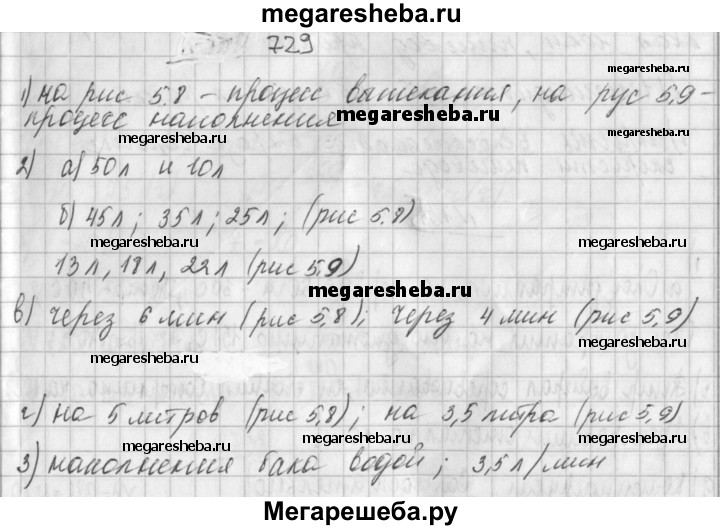 megaresheba.ru
729
megaresheba.ru
1) на рис 5.8 - процесс вытекания, на рус 5.9 -
megaresheba.ru
процесс наполнения
megaresheba.ru
2) а) 50 л и 10 л
б) 45 л; 35 л; 25 л; (рис 5.8)
megaresheba.ru megaresheba.ru
13 л, 18 л, 22 л (рис 5.9)
megaresheba.ru
в) через 6 мин (рис 5,8); через 4 мин (рис 5,9)
megaresheba.ru megaresheba.ru
г) на 5 литров (рис 5,8); на 3,5 литра (рис 5,9)
megaresheba.ru megaresheba.ru
3) наполнения бака водой; 3,5 л/мин
Мегарешеба.ру